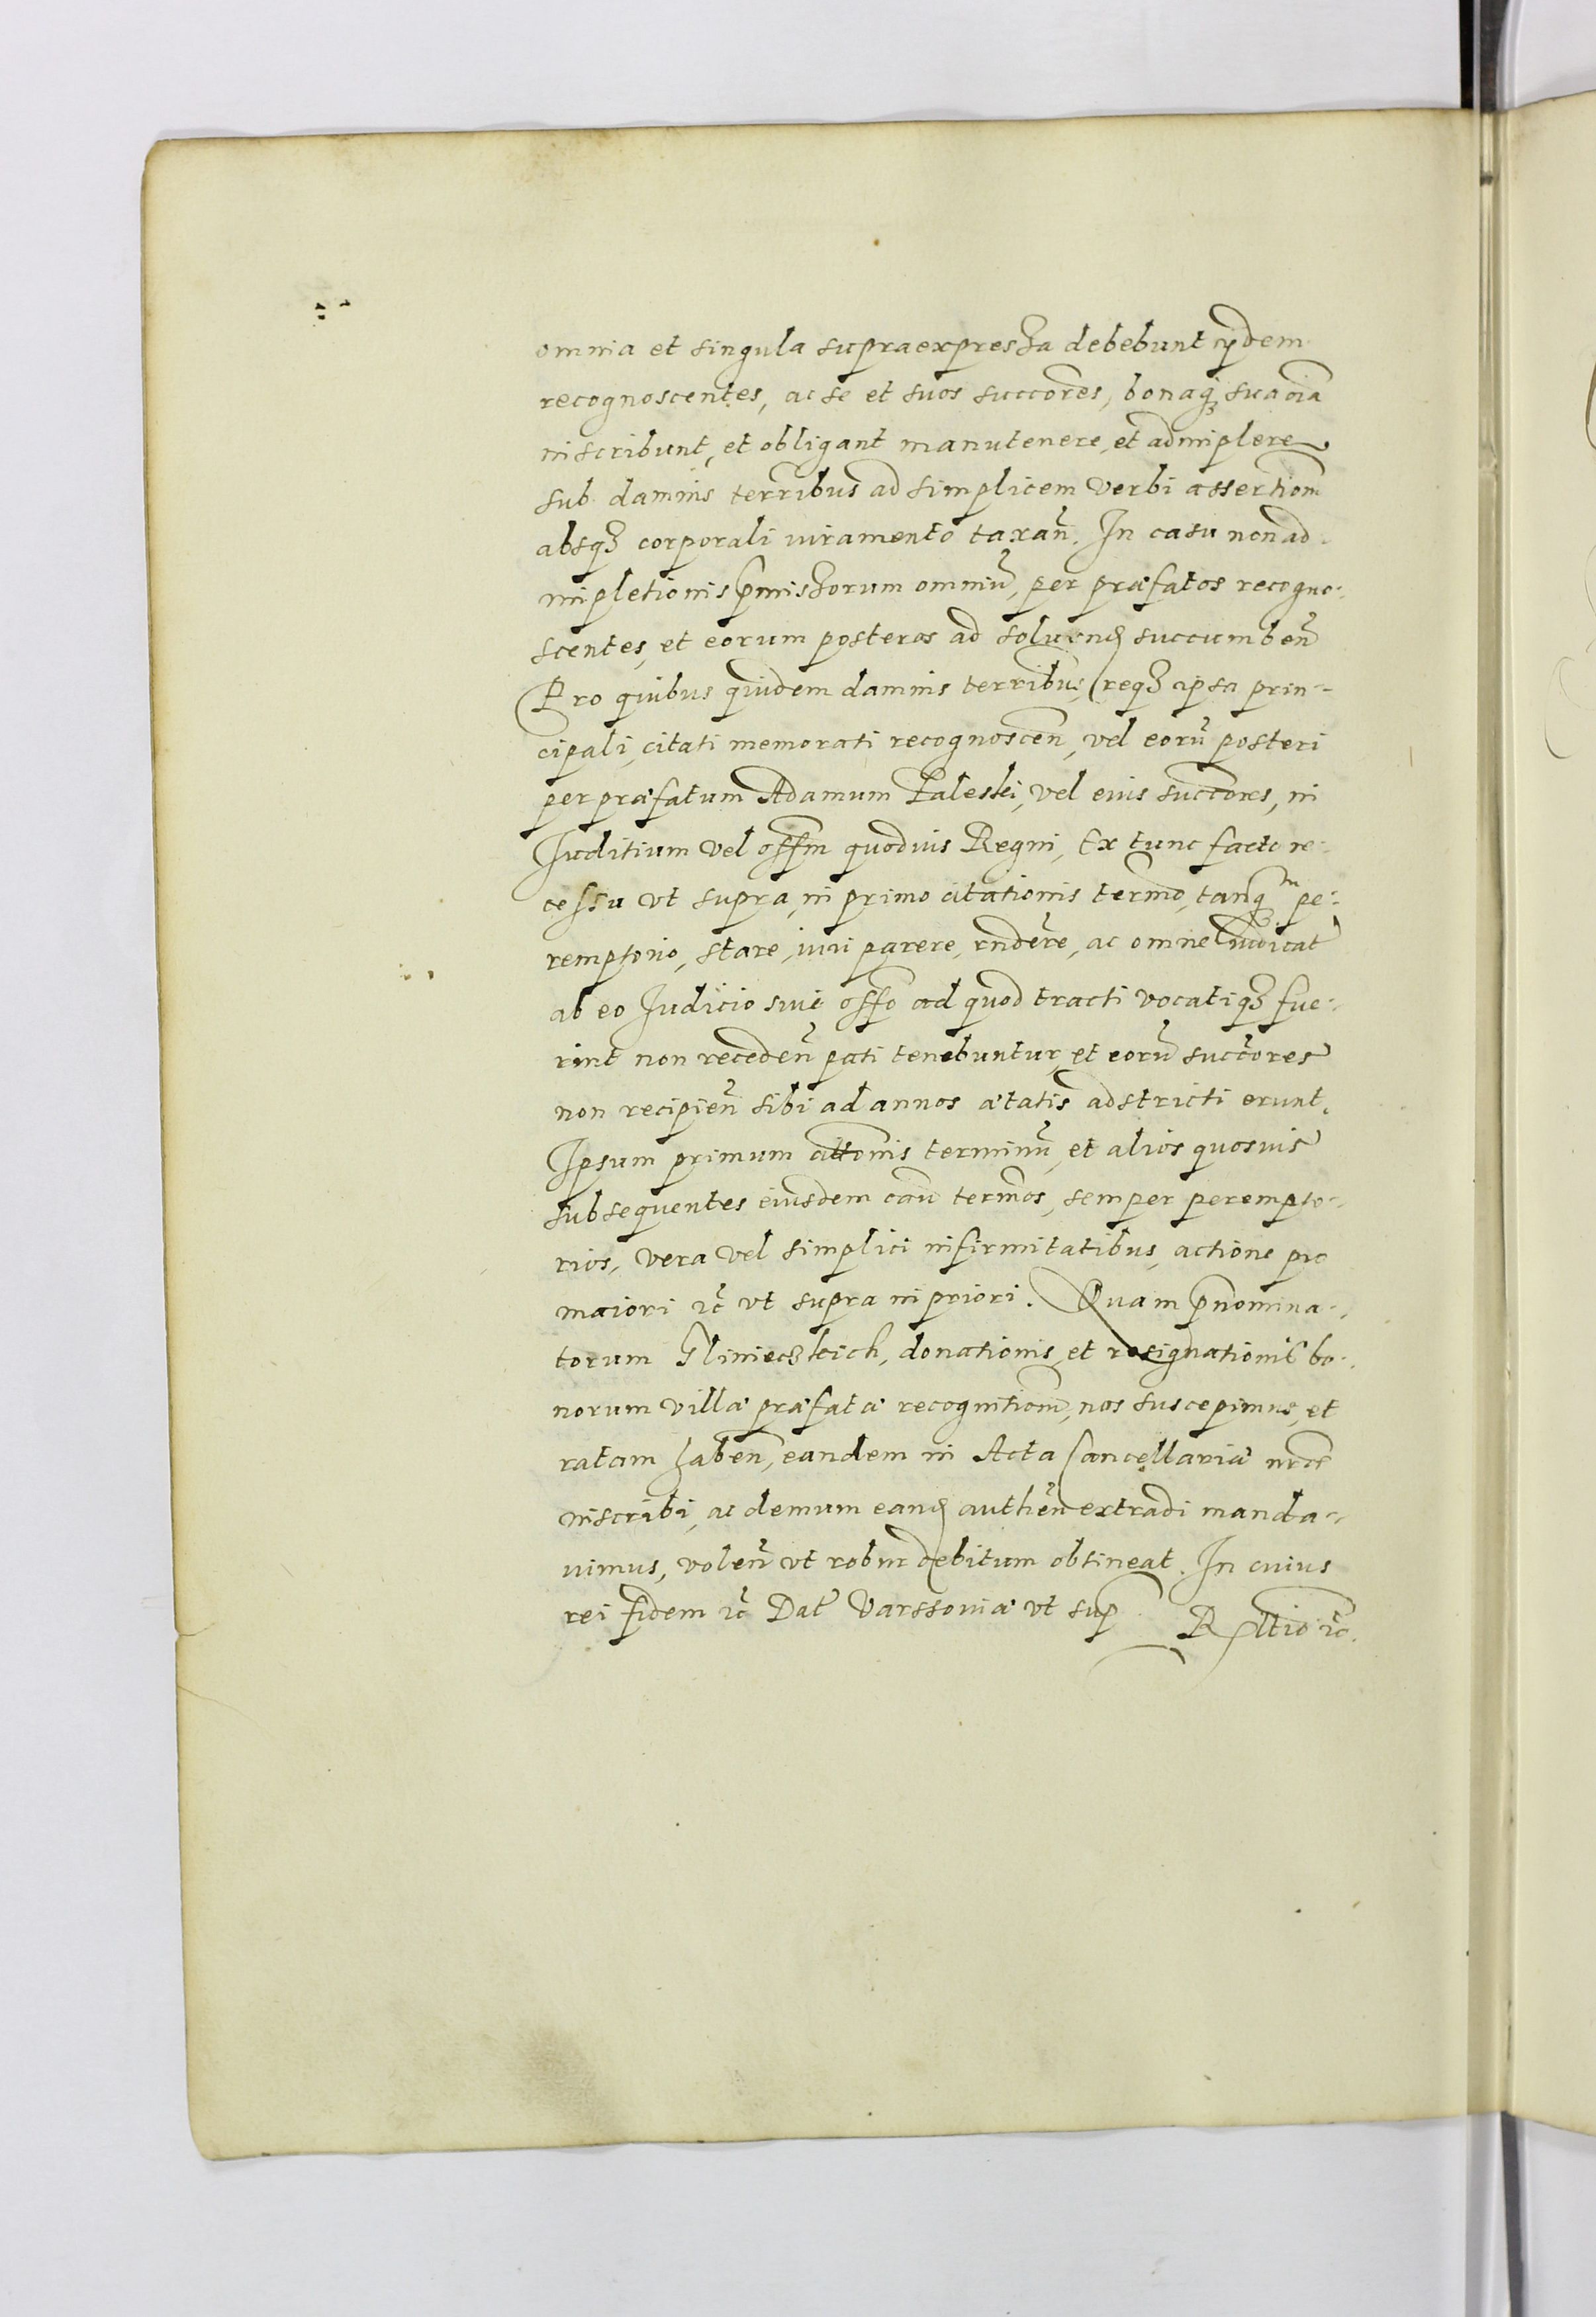 omnia et singula supraexpressa debebunt ijdem
recognoscentes, ac se et suos succores, bonaqʒ sua oia
inscribunt, et obligant manutenere, et adimplere
sub damnis terribus ad simplicem verbi assertiom
absqʒ corporali iuramento taxan̄. In casu non ad-
impletionis p̄missorum omniū, per præfatos recogno-
scentes, et eorum posteros ad soluend succumben̄
Pro quibus quidem damnis terribus, reqʒ ipsa prin-
cipali, citati memorati recognoscen̄, vel eorū posteri
per præfatum Adamum Zaleski, vel eius succores, in
Iuditium vel offm quoduis Regni, Ex tunc facto re-
cessu vt supra, in primo citationis termo, tanqm pe-
remptorio, stare, iuri parere, rndere, ac omne iudicat
ab eo Judicio siue offo ad quod tracti vocatiqʒ fue-
rint non receden̄ pati tenebuntur, et eorū succores
non recipien̄ sibi ad annos ætatis adstricti erunt.
Ipsum primum cittonis terminū, et alios quosuis
subsequentes eiusdem cau termos, semper perempto-
rios, vera vel simplici infirmitatibus, actione pro
maiori &c vt supra in priori. Quam p̄nomina-
torum Glinieczkich, donationis, et resignationis bo-
norum villæ præfatæ recognitiom, nos suscepimus, et
ratam haben̄, eandem in Acta Cancellariæ nræ
inscribi, ac demum eand authen̄ extradi manda-
uimus, volen̄ vt robur debitum obtineat. In cuius
rei fidem &c Dat Varssouiæ vt sup
Rltio &c.